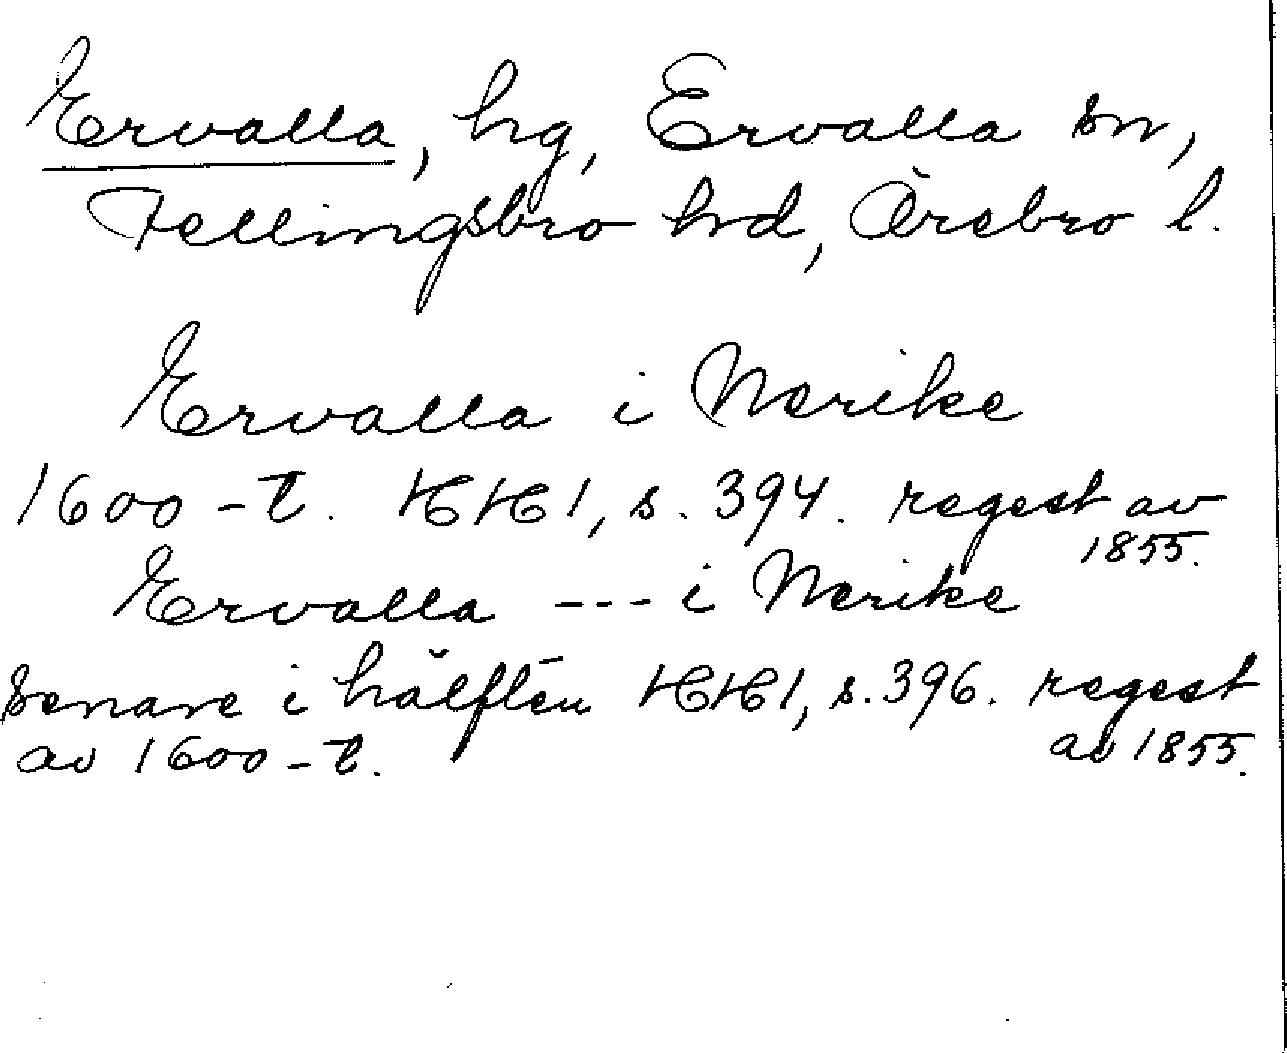 Ervalla, hg, Ervalla sn,
Fellingsbro hrd, Örebro l.
Ervalla i Nerike
1600-t. HH1, s. 394. regest av
1855.
Ervalla --- i Nerike
senare i hälften HH1, s. 396. regest
av 1600-t. av 1855.